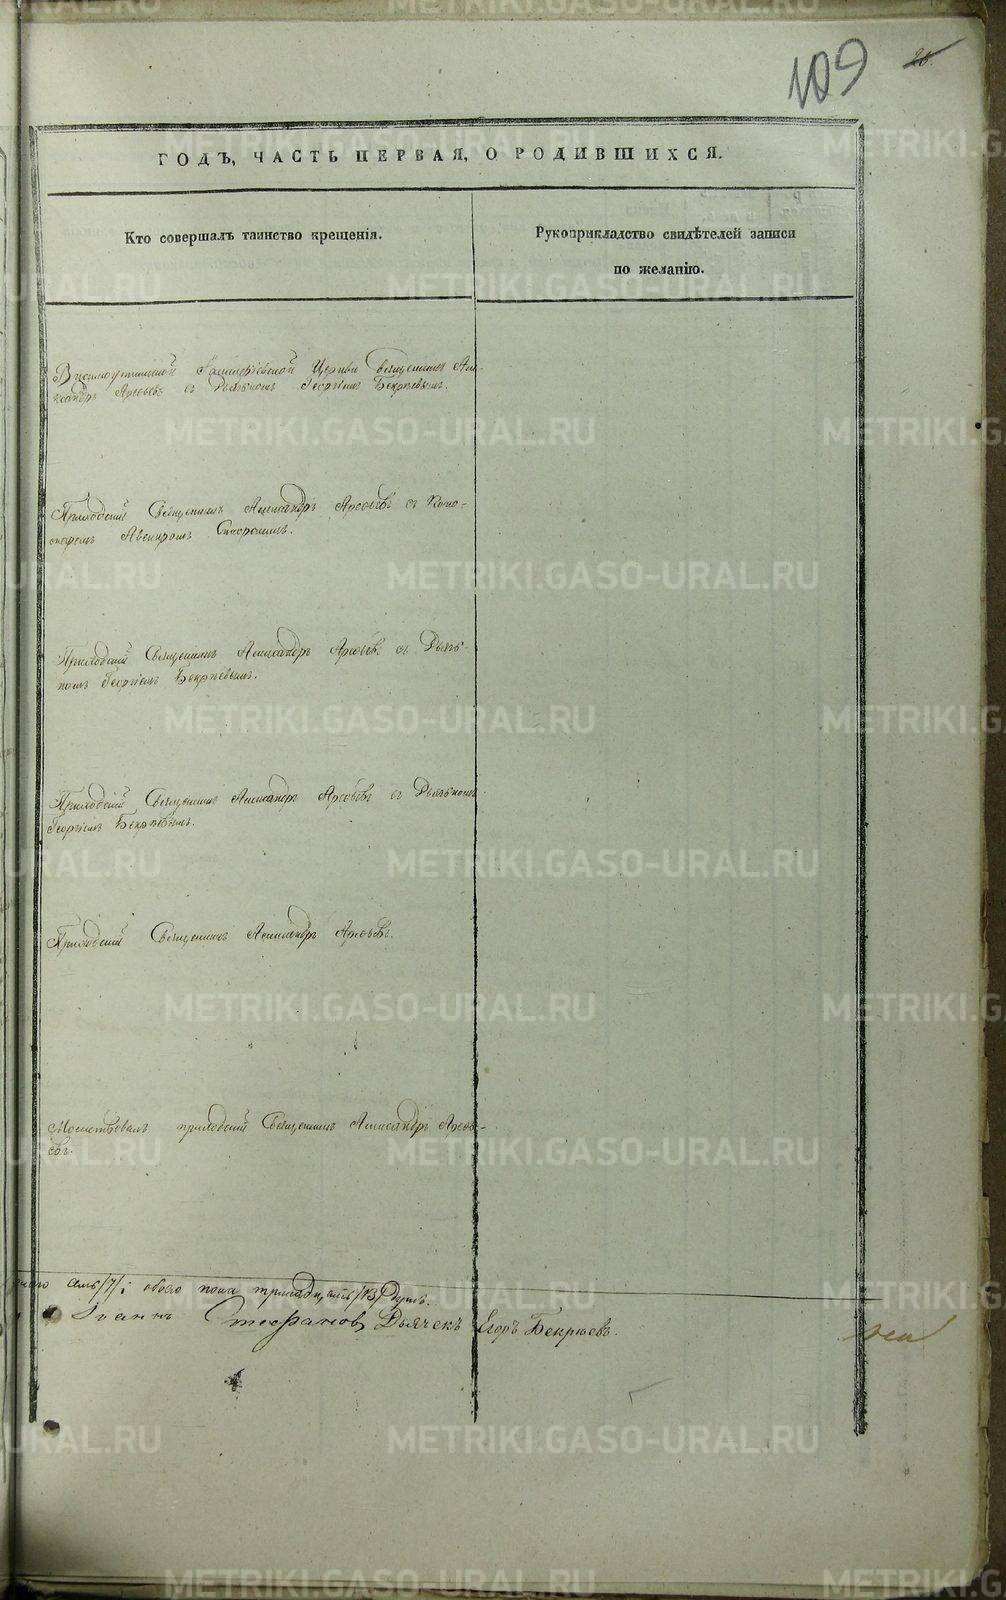 109
26.
ГОДЪ, ЧАСТЬ ПЕРВАЯ, О РОДИВШИХСЯ.
Кто совершалъ таинство крещенія.
Рукоприкладство свидѣтелей записи
по желанію.
Церкви Священникъ Але-
ксандръ Арефьевъ съ Дьячкомъ Георгіемъ Бекрѣевымъ.
Приходскій Священникъ Александръ Арефьевъ съ Поно-
маремъ
Приходскій Священникъ Александръ Арефьевъ съ Дьяч-
комъ Георгіемъ Бекрѣевымъ.
Приходскій Священникъ Александръ Арефьевъ съ Дьячкомъ
Георгіемъ Бекрѣевымъ.
Приходскій Священникъ Александръ Арефьевъ.
приходскій Священникъ Александръ Арефь-
евъ.
/7/; обоего пола тринадцать /13/ душъ.
Іоаннъ Стефановъ, Дьячекъ Егоръ Бекрѣевъ.
METRIKI.GASO-URAL.RU